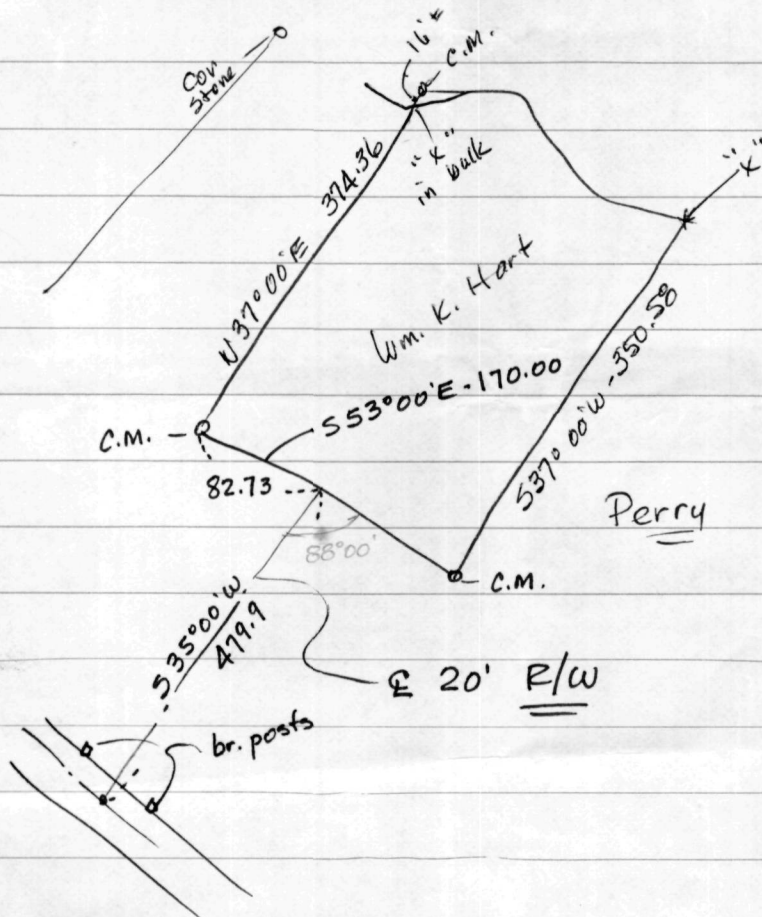 Cor
stone
16'±
C.M.
"X"
in bulk
N 37°00'E 374.36
"X"
Wm. K. Hart
S53°00'E - 170.00
S37°00'W - 350.58
C.M.
82.73
88°00'
Perry
C.M.
S35°00'W
479.9
℄ 20' R/W
br. posts